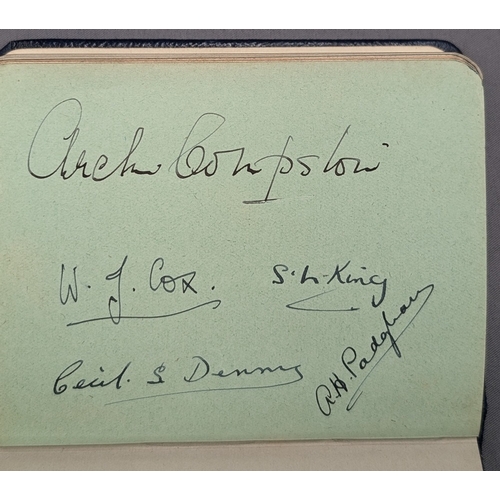 Archie Compston
W. J. Cox.
S. L. King
Cecil. S Denny
A. H. Padgham